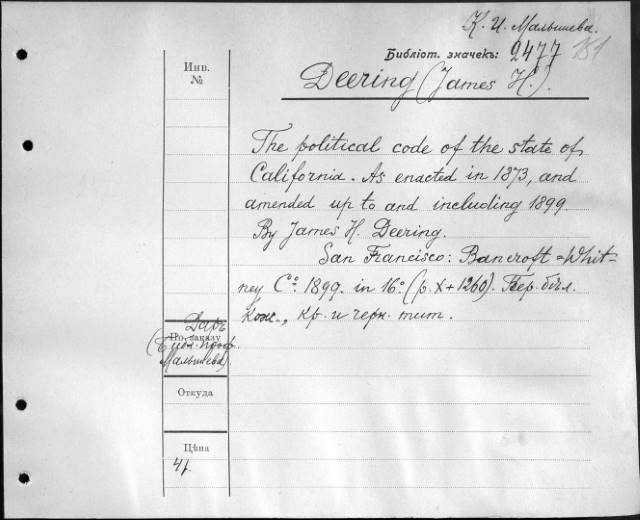 К. И. Малышева.
Библіот. значекъ: 2477 151
Инв.
№
Deering (James H.).
The political code of the state of
California. As enacted in 1873, and
amended up to and including 1899.
By James H. Deering.
San Francisco: Bancroft=Whit-
ney Cº. 1899. in 16º. (p. X + 1260). Пер. бѣл.
кож., кр. и черн. тит.
Даръ
По заказу
(Библ. проф.
Малышева).
Откуда
Цѣна
4 р.